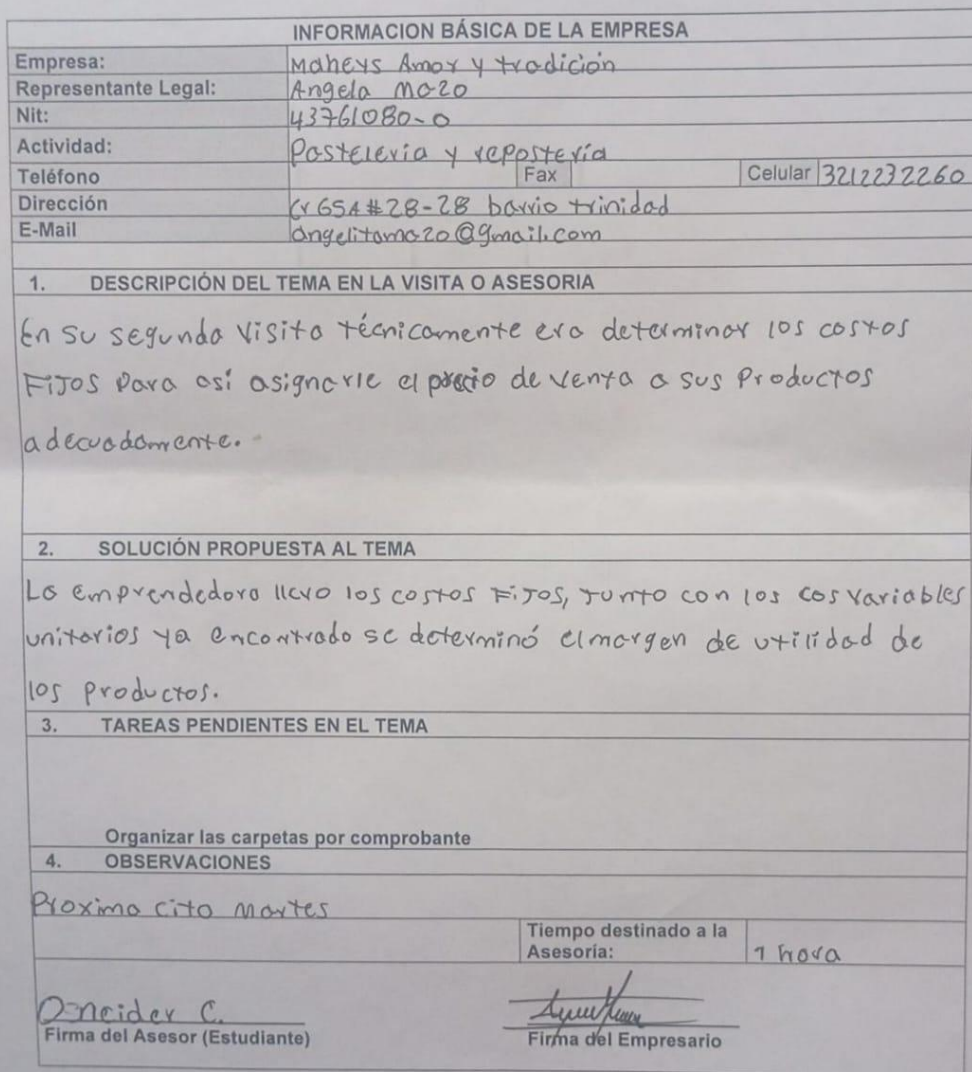 INFORMACION BÁSICA DE LA EMPRESA
Empresa: Maheys Amor y tradición
Representante Legal: Angela Mazo
Nit: 43761080-0
Actividad: Pastelería y repostería
Teléfono Fax Celular 3212232260
Dirección Cr 65A #28-28 barrio trinidad
E-Mail angelitamazo@gmail.com
1. DESCRIPCIÓN DEL TEMA EN LA VISITA O ASESORIA
En su segunda visita técnicamente era determinar los costos
Fijos para así asignarle el precio de venta a sus productos
adecuadamente.
2. SOLUCIÓN PROPUESTA AL TEMA
La emprendedora llevo los costos Fijos, junto con los cos variables
unitarios ya encontrado se determinó el margen de utilidad de
los productos.
3. TAREAS PENDIENTES EN EL TEMA
Organizar las carpetas por comprobante
4. OBSERVACIONES
Proxima cita Martes
Tiempo destinado a la
Asesoría: 1 hora
Oneider C.
Firma del Asesor (Estudiante) Firma del Empresario